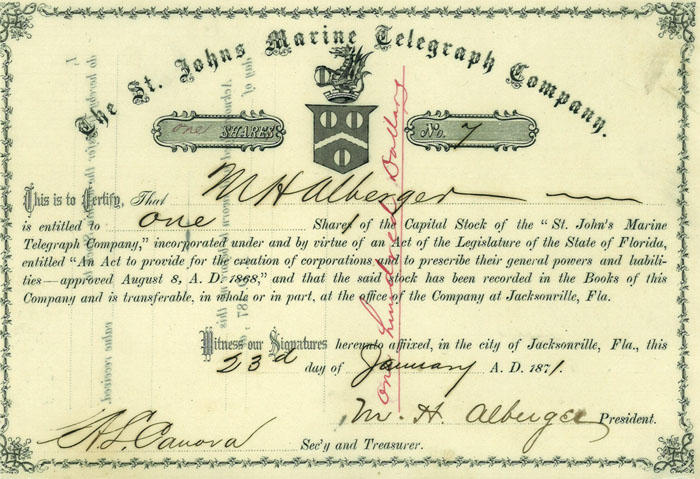 The St. Johns Marine Telegraph Company.
one SHARES
No. 7
This is to Certify, That M H Alberger
is entitled to one Share of the Capital Stock of the "St. John's Marine
Telegraph Company," incorporated under and by virtue of an Act of the Legislature of the State of Florida,
entitled "An Act to provide for the creation of corporations and to prescribe their general powers and habili-
ties—approved August 8, A. D. 1868," and that the said stock has been recorded in the Books of this
Company and is transferable, in whole or in part, at the office of the Company at Jacksonville, Fla.
Witness our Signatures hereunto affixed, in the city of Jacksonville, Fla., this
23d day of January A. D. 1871.
M. H. Alberger President.
A S Canova Sec'y and Treasurer.
one hundred Dollars